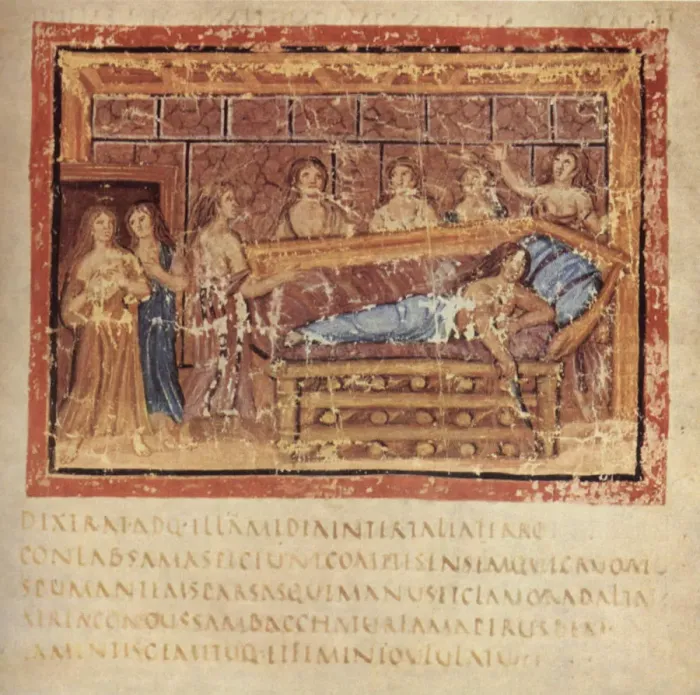 DIXERATADQ·ILLAMMEDIAINTERTALIAFERRO
CONLABSAMASPICIUNTCOMITESENSEMQUECRUORE
SPUMANTEMSPARSASQUEMANUSITCLAMORADALTA
ATRIACONCUSSAMBACCHATURFAMAPERURBEM
LAMENTISGEMITUQ·ETFEMINEOULULATU